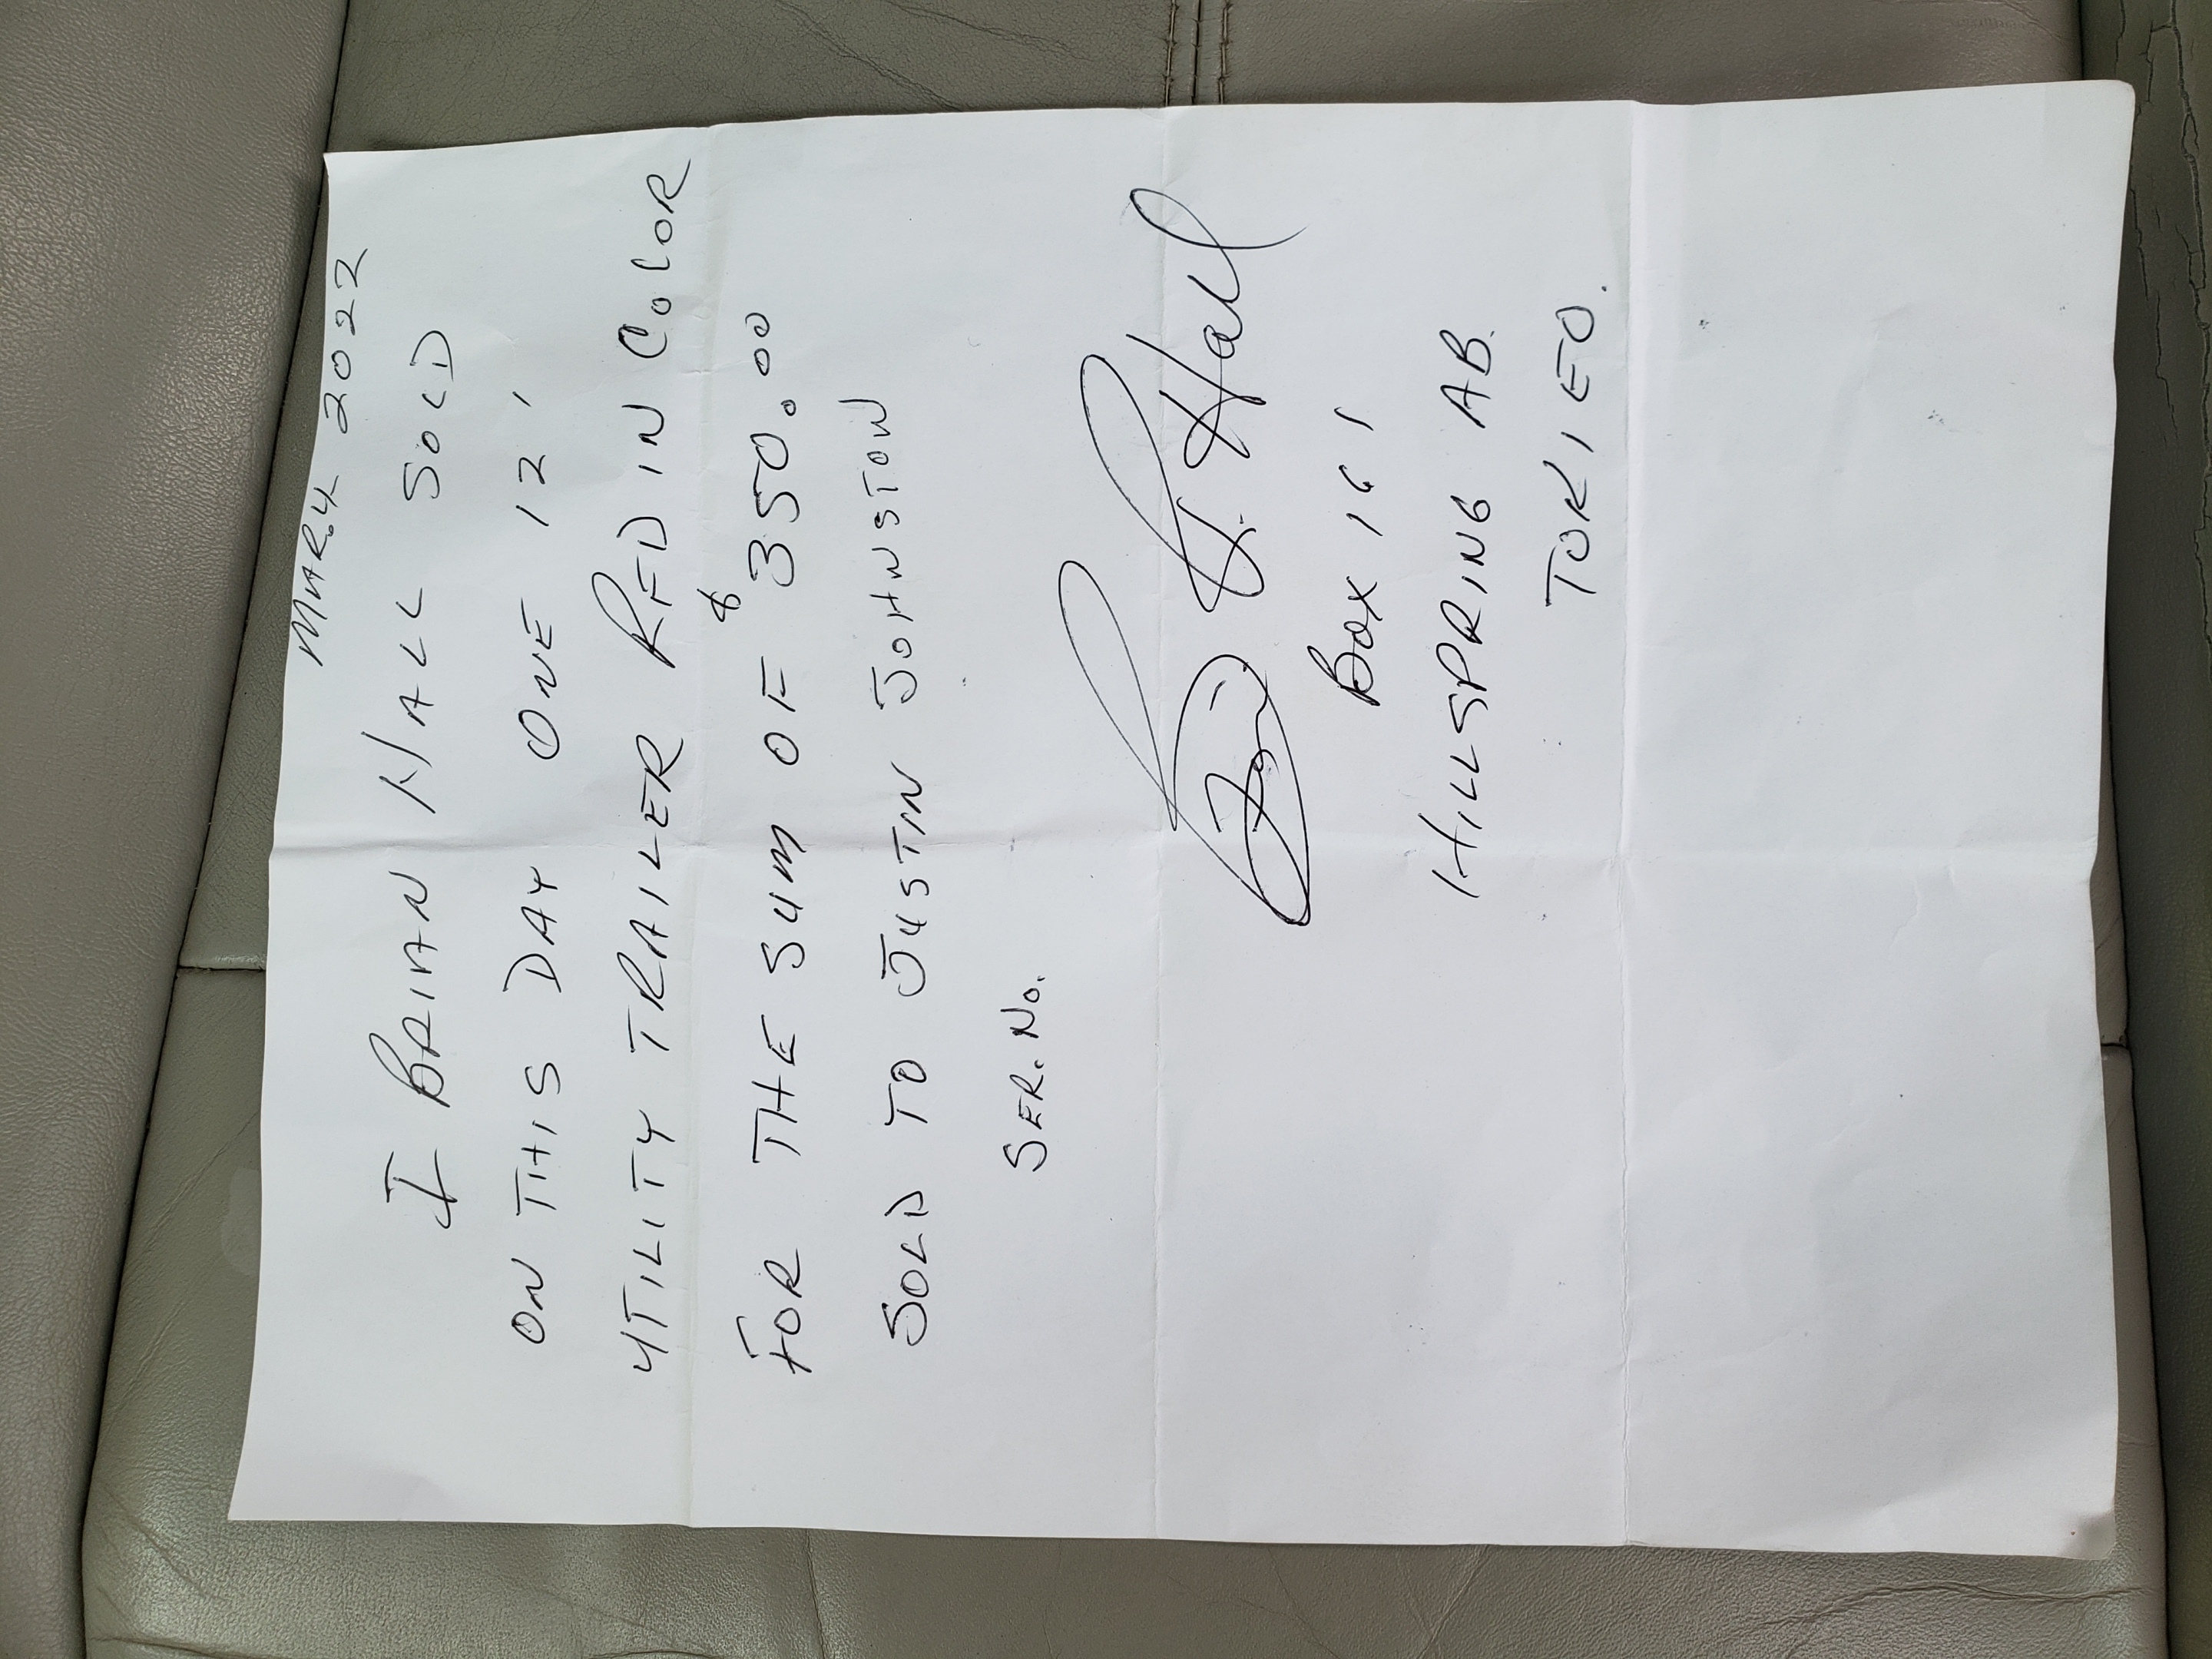 MAR.4 2022
I BRIAN HALL SOLD
ON THIS DAY ONE 12'
UTILITY TRAILER RED IN COLOR
FOR THE SUM OF $350.00
SOLD TO JUSTIN JOHNSTON
SER. NO.
B. Hall
BOX 161
HILLSPRING AB.
TOK1EO.